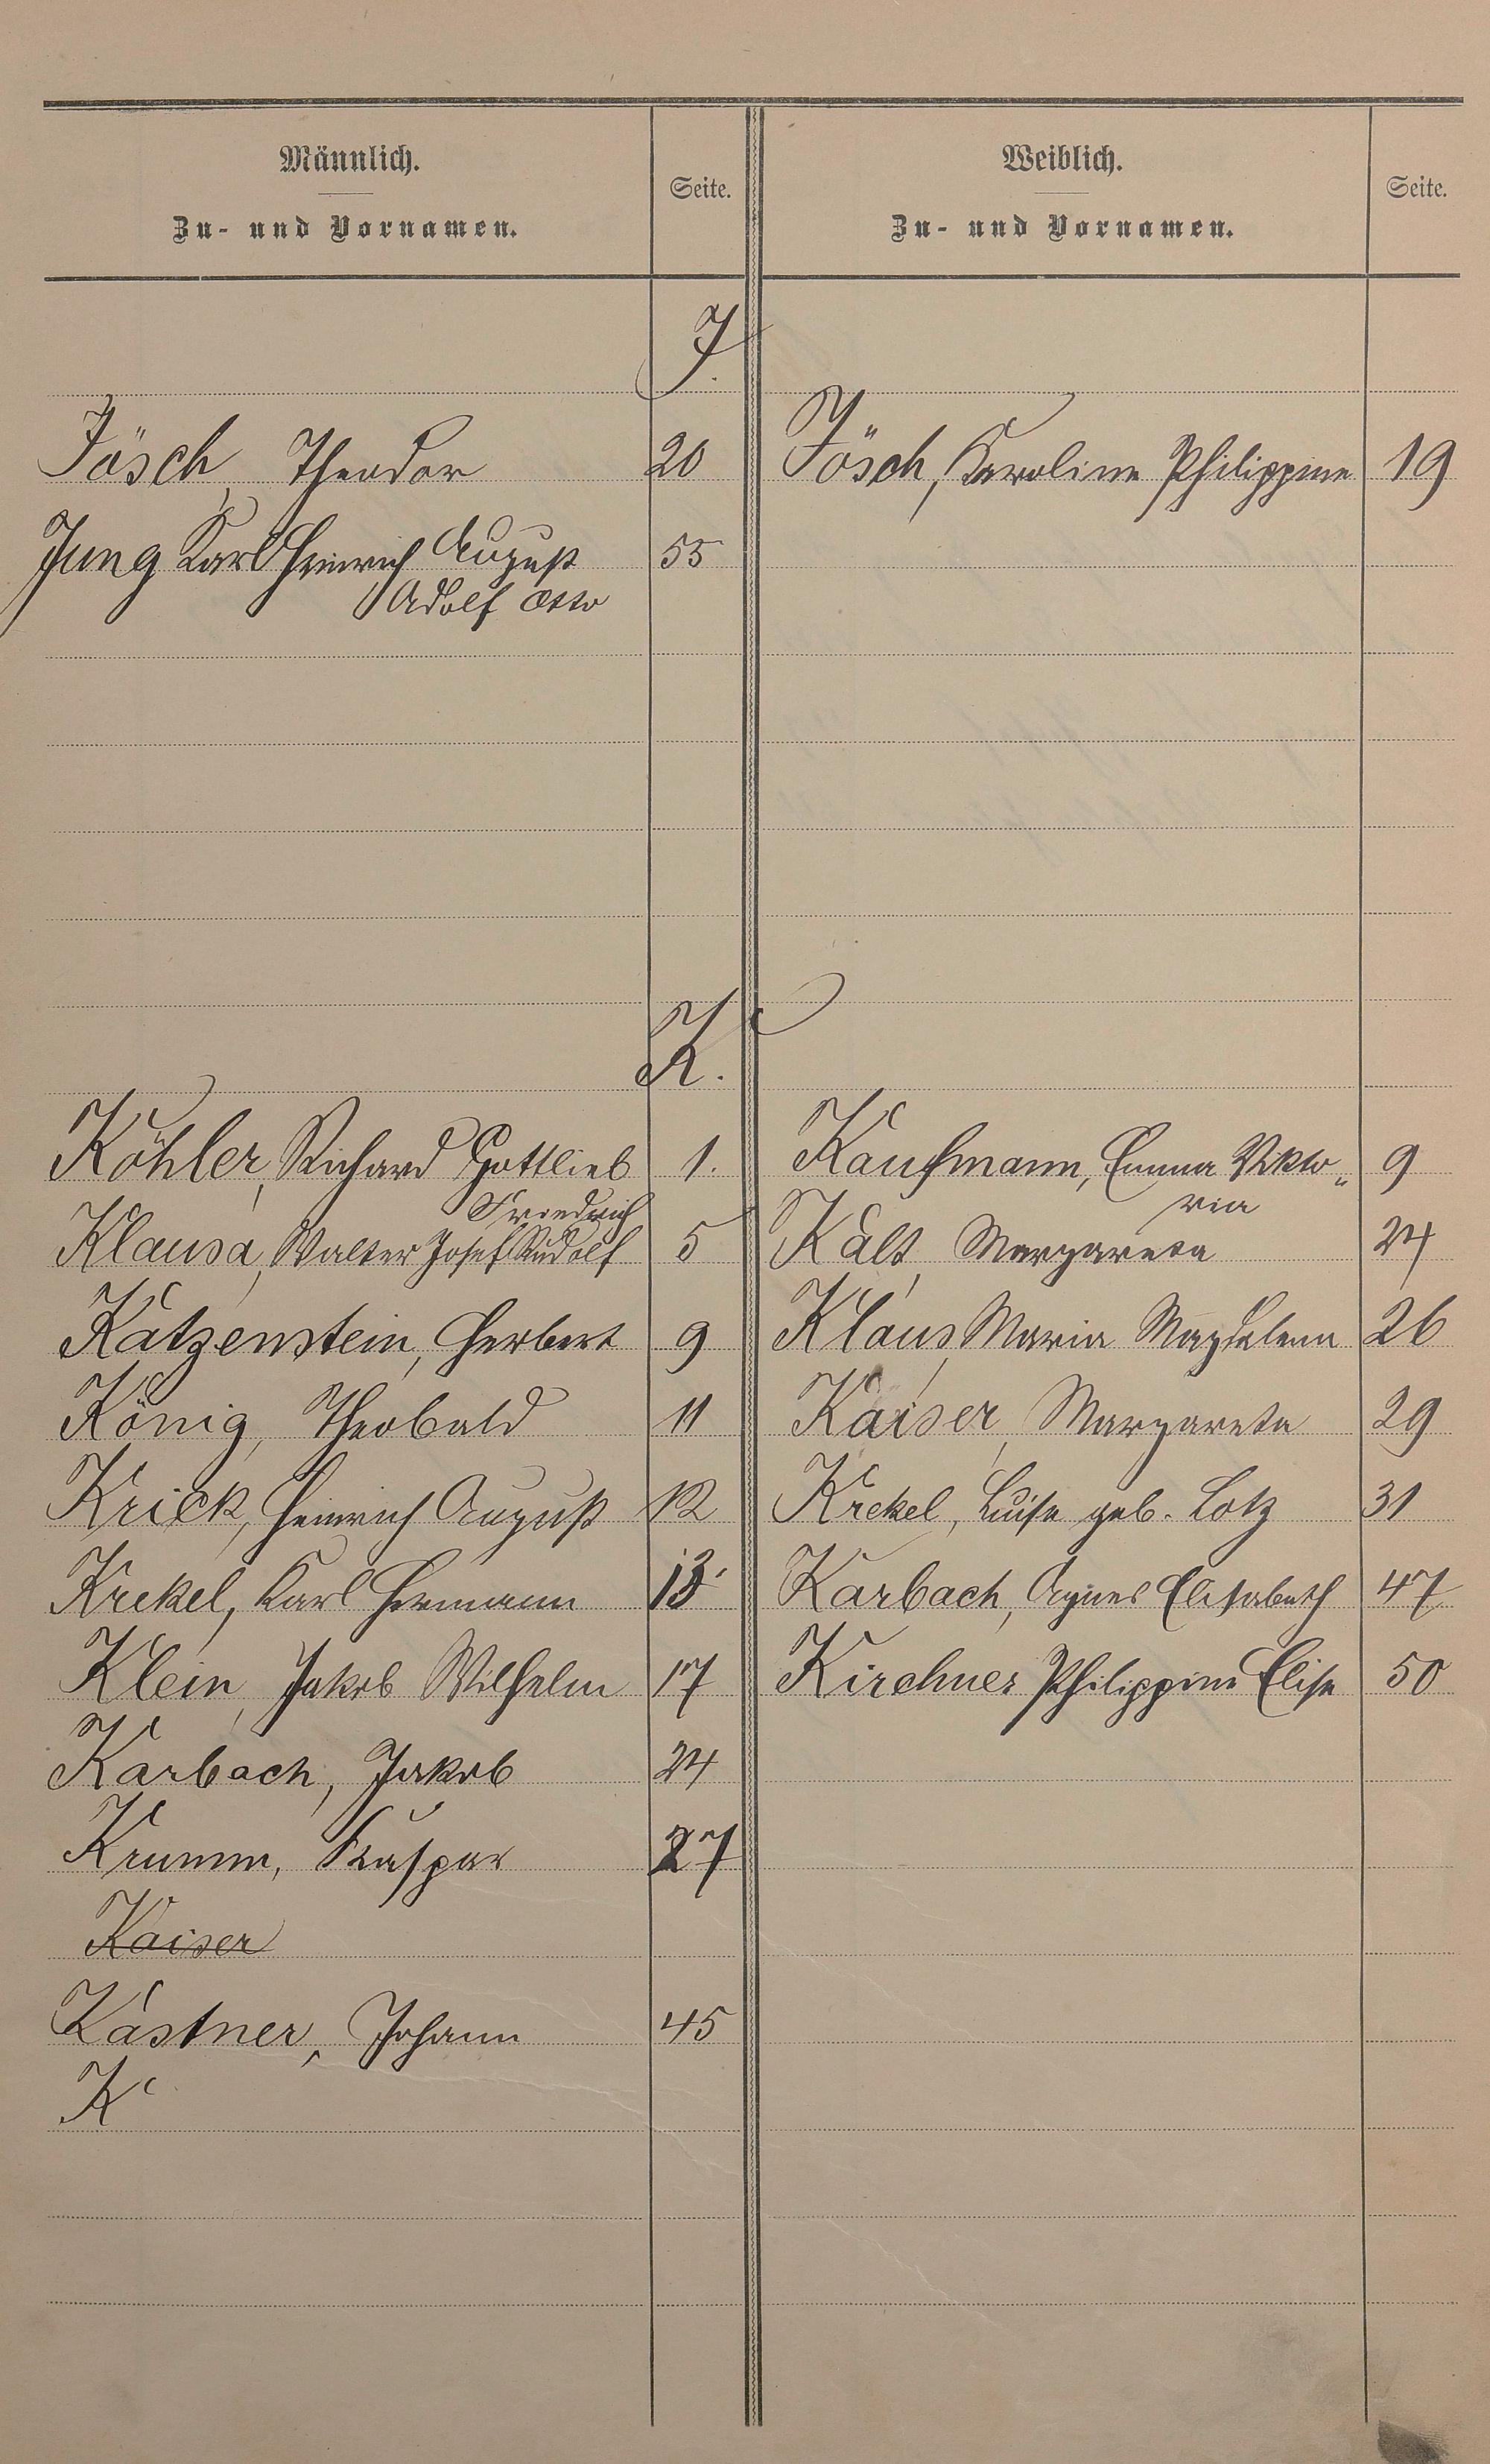 Männlich.
Zu- und Vornamen.
Seite.
Weiblich.
Zu- und Vornamen.
Seite.
J.
Jösch, Theodor 20 Jösch, Karoline Philippine 19
Jung Karl Heinrich August 55
Adolf Otto
K.
Köhler, Richard Gottlieb 1. Kaufmann, Emma Vikto„ 9
Friedrich ria
Klausa, Walter Josef Rudolf 5 Kalt, Margareta 24
Katzenstein, Herbert 9 Klaus, Maria Magdalena 26
König, Theobald 11 Kaiser, Margareta 29
Krick, Heinrich August 12 Krekel, Luise geb. Lotz 31
Krekel, Karl Hermann 13 Karbach, Agnes Elisabeth 47
Klein, Jakob Wilhelm 17 Kirchner Philippine Elise 50
Karbach, Jakob 24
Krumm, Kaspar 27
Kaiser
Kastner, Johann 45
K